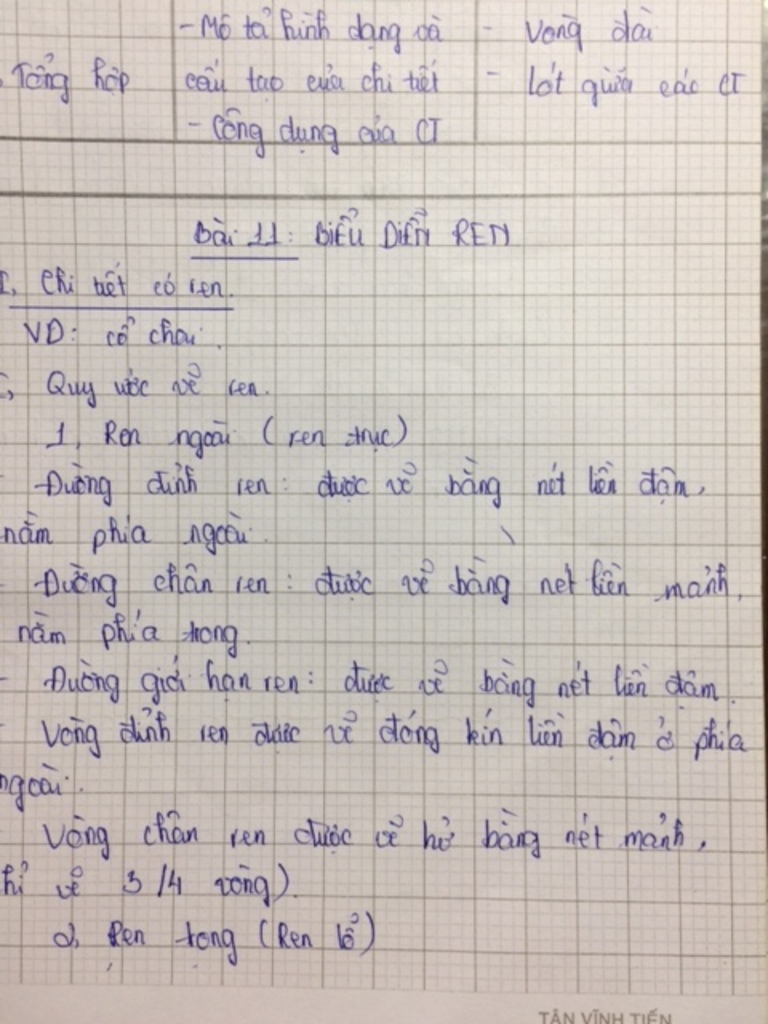 - Mô tả hình dạng và - Vòng đai
Tổng hợp cấu tạo của chi tiết - Lót giữa các CT
- Công dụng của CT
Bài 11: BIỂU DIỄN REN
I, Chi tiết có ren.
VD: cổ chai.
, Quy ước về ren.
1, Ren ngoài (ren trục)
- Đường đỉnh ren: được vẽ bằng nét liền đậm,
nằm phía ngoài.
- Đường chân ren: được vẽ bằng nét liền mảnh,
nằm phía trong.
- Đường giới hạn ren: được vẽ bằng nét liền đậm.
- Vòng đỉnh ren được vẽ đóng kín liền đậm ở phía
ngoài.
Vòng chân ren được vẽ hở bằng nét mảnh,
hỉ vẽ 3/4 vòng).
2, Ren trong (Ren lỗ)
TÂN VĨNH TIẾN